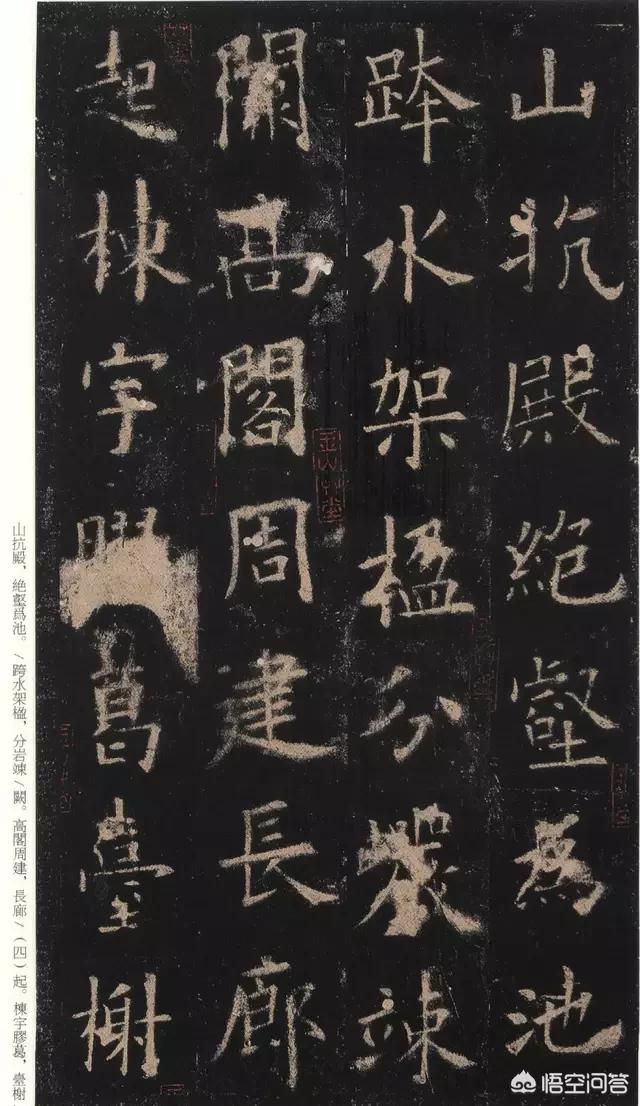 山抗殿絕壑為池
跨水架楹分巖竦
闕高閣周建長廊
起棟宇膠葛臺榭
山抗殿，絶壑爲池。/跨水架楹，分岩竦/闕。高閣周建，長廊/（四）起。棟宇膠葛，臺榭
悟空问答